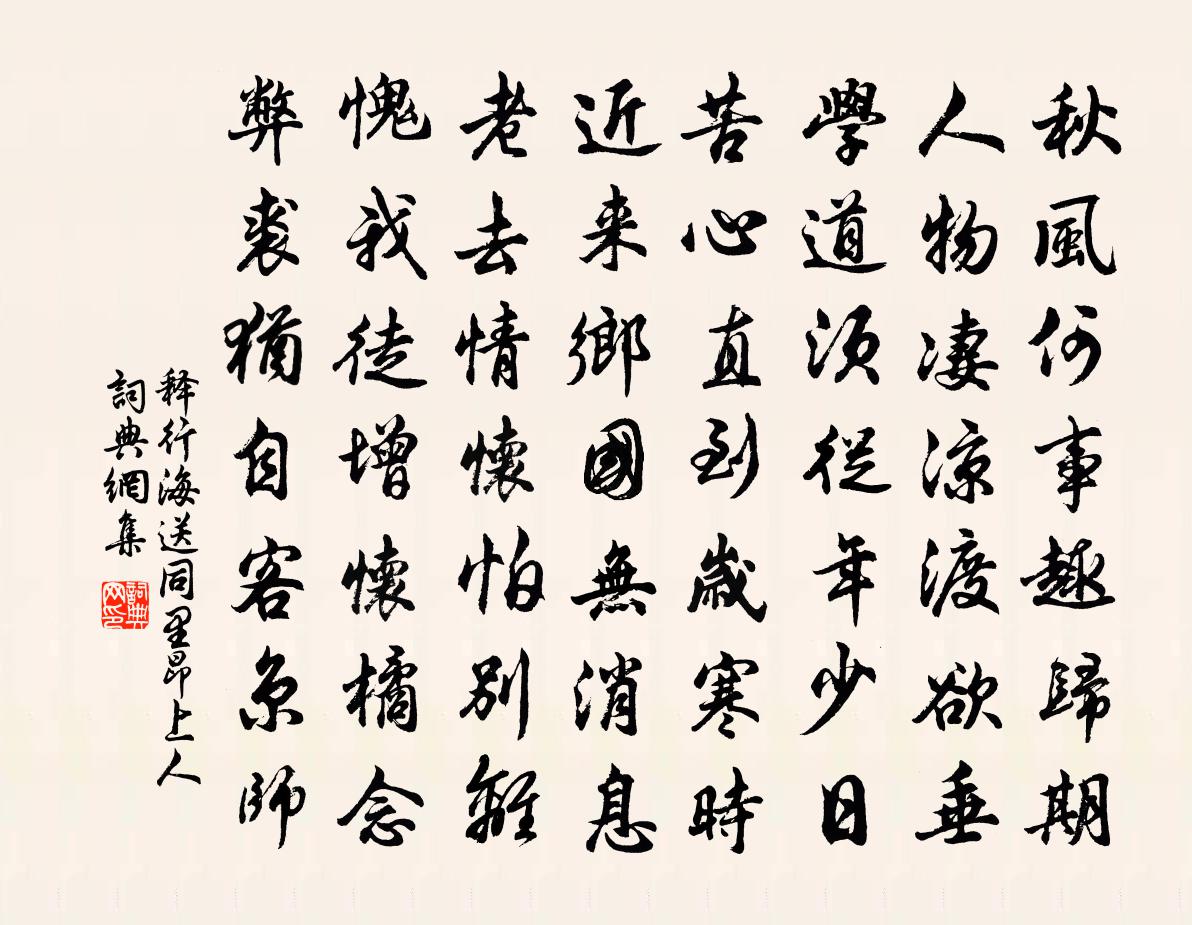 秋風何事趣歸期
人物凄涼渡欲垂
學道須從年少日
苦心直到歲寒時
近来鄉國無消息
老去情懷怕別離
愧我徒增懷橘念
弊裘猶自客京師
释行海送同里昂上人
詞典網集
詞典网印